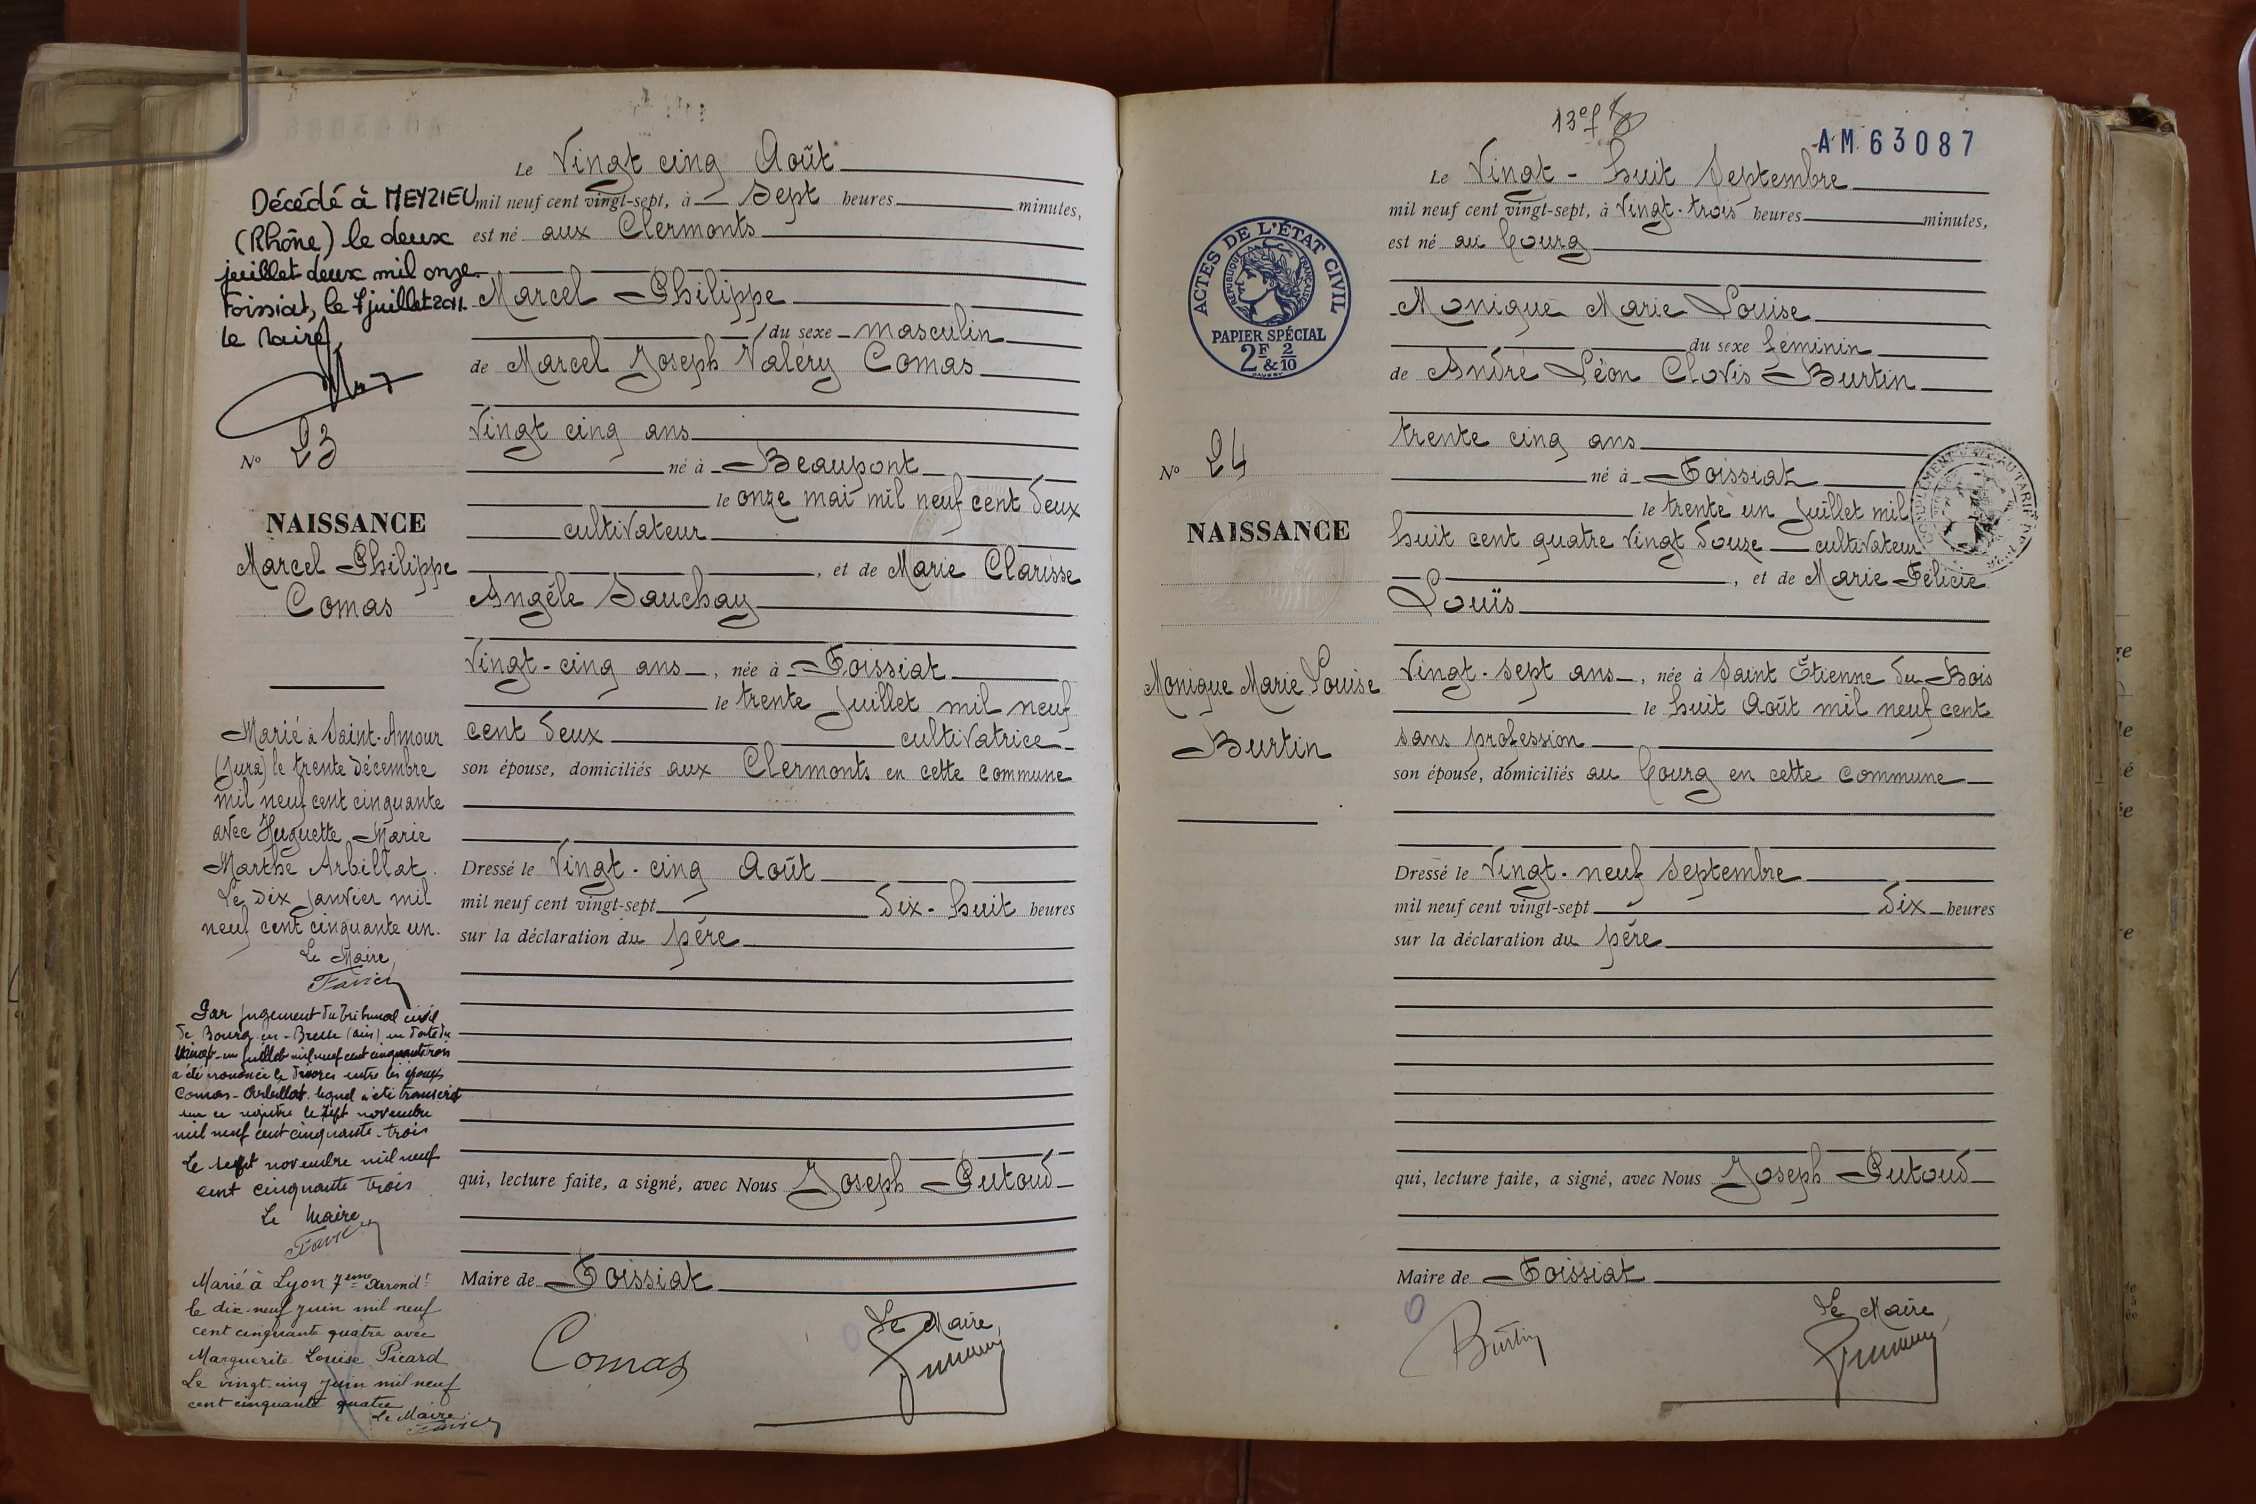 Le Vingt cinq Août
mil neuf cent vingt-sept, à sept heures minutes,
est né aux Clermonts
Marcel Philippe
du sexe masculin
de Marcel Joseph Valéry Comas
Vingt cinq ans
né à Beaupont
le onze mai mil neuf cent deux
cultivateur
, et de Marie Clarisse
Angèle Sauchay
Vingt-cinq ans, née à Foissiat
le trente Juillet mil neuf
cent deux cultivatrice
son épouse, domiciliés aux Clermonts en cette commune
Dressé le Vingt-cinq Août
mil neuf cent vingt-sept dix-huit heures
sur la déclaration du père
qui, lecture faite, a signé, avec Nous Joseph Putoud
Maire de Foissiat
Comas
Le Maire,
Décédé à MEYZIEU
(Rhône) le deux
juillet deux mil onze
Foissiat, le 7 juillet 2011.
Le Maire,
N° 23
NAISSANCE
Marcel Philippe
Comas
Marié à Saint-Amour
(Jura) le trente décembre
mil neuf cent cinquante
avec Huguette Marie
Marthe Arbillat.
Le dix janvier mil
neuf cent cinquante un.
Le Maire,
Favier
Par jugement du tribunal civil
de Bourg-en-Bresse (Ain) en date du
vingt-un juillet mil neuf cent cinquante trois
a été prononcé le divorce entre les époux
Comas-Arbillat lequel a été transcrit
sur ce registre le sept novembre
mil neuf cent cinquante-trois
Le sept novembre mil neuf
cent cinquante trois
Le Maire
Favier
Marié à Lyon 7ème Arrondt
le dix-neuf juin mil neuf
cent cinquante quatre avec
Marguerite Louise Picard
Le vingt-cinq juin mil neuf
cent cinquante quatre
Le Maire:
Favier
13e f
AM 63087
Le Vingt-huit Septembre
mil neuf cent vingt-sept, à Vingt-trois heures minutes,
est né au Courg
Monique Marie Louise
du sexe féminin
de André Léon Clovis Burtin
trente cinq ans
né à Foissiat
le trente un Juillet mil
huit cent quatre vingt douze cultivateur
, et de Marie Félicie
Louïs
Vingt-sept ans, née à Saint Étienne du Bois
le huit Août mil neuf cent
sans profession
son épouse, domiciliés au Courg en cette commune
Dressé le Vingt-neuf septembre
mil neuf cent vingt-sept dix heures
sur la déclaration du père
qui, lecture faite, a signé, avec Nous Joseph Putoud
Maire de Foissiat
Burtin
Le Maire
ACTES DE L'ÉTAT CIVIL
RÉPUBLIQUE FRANÇAISE
PAPIER SPÉCIAL
2F & 2/10
N° 24
NAISSANCE
Monique Marie Louise
Burtin